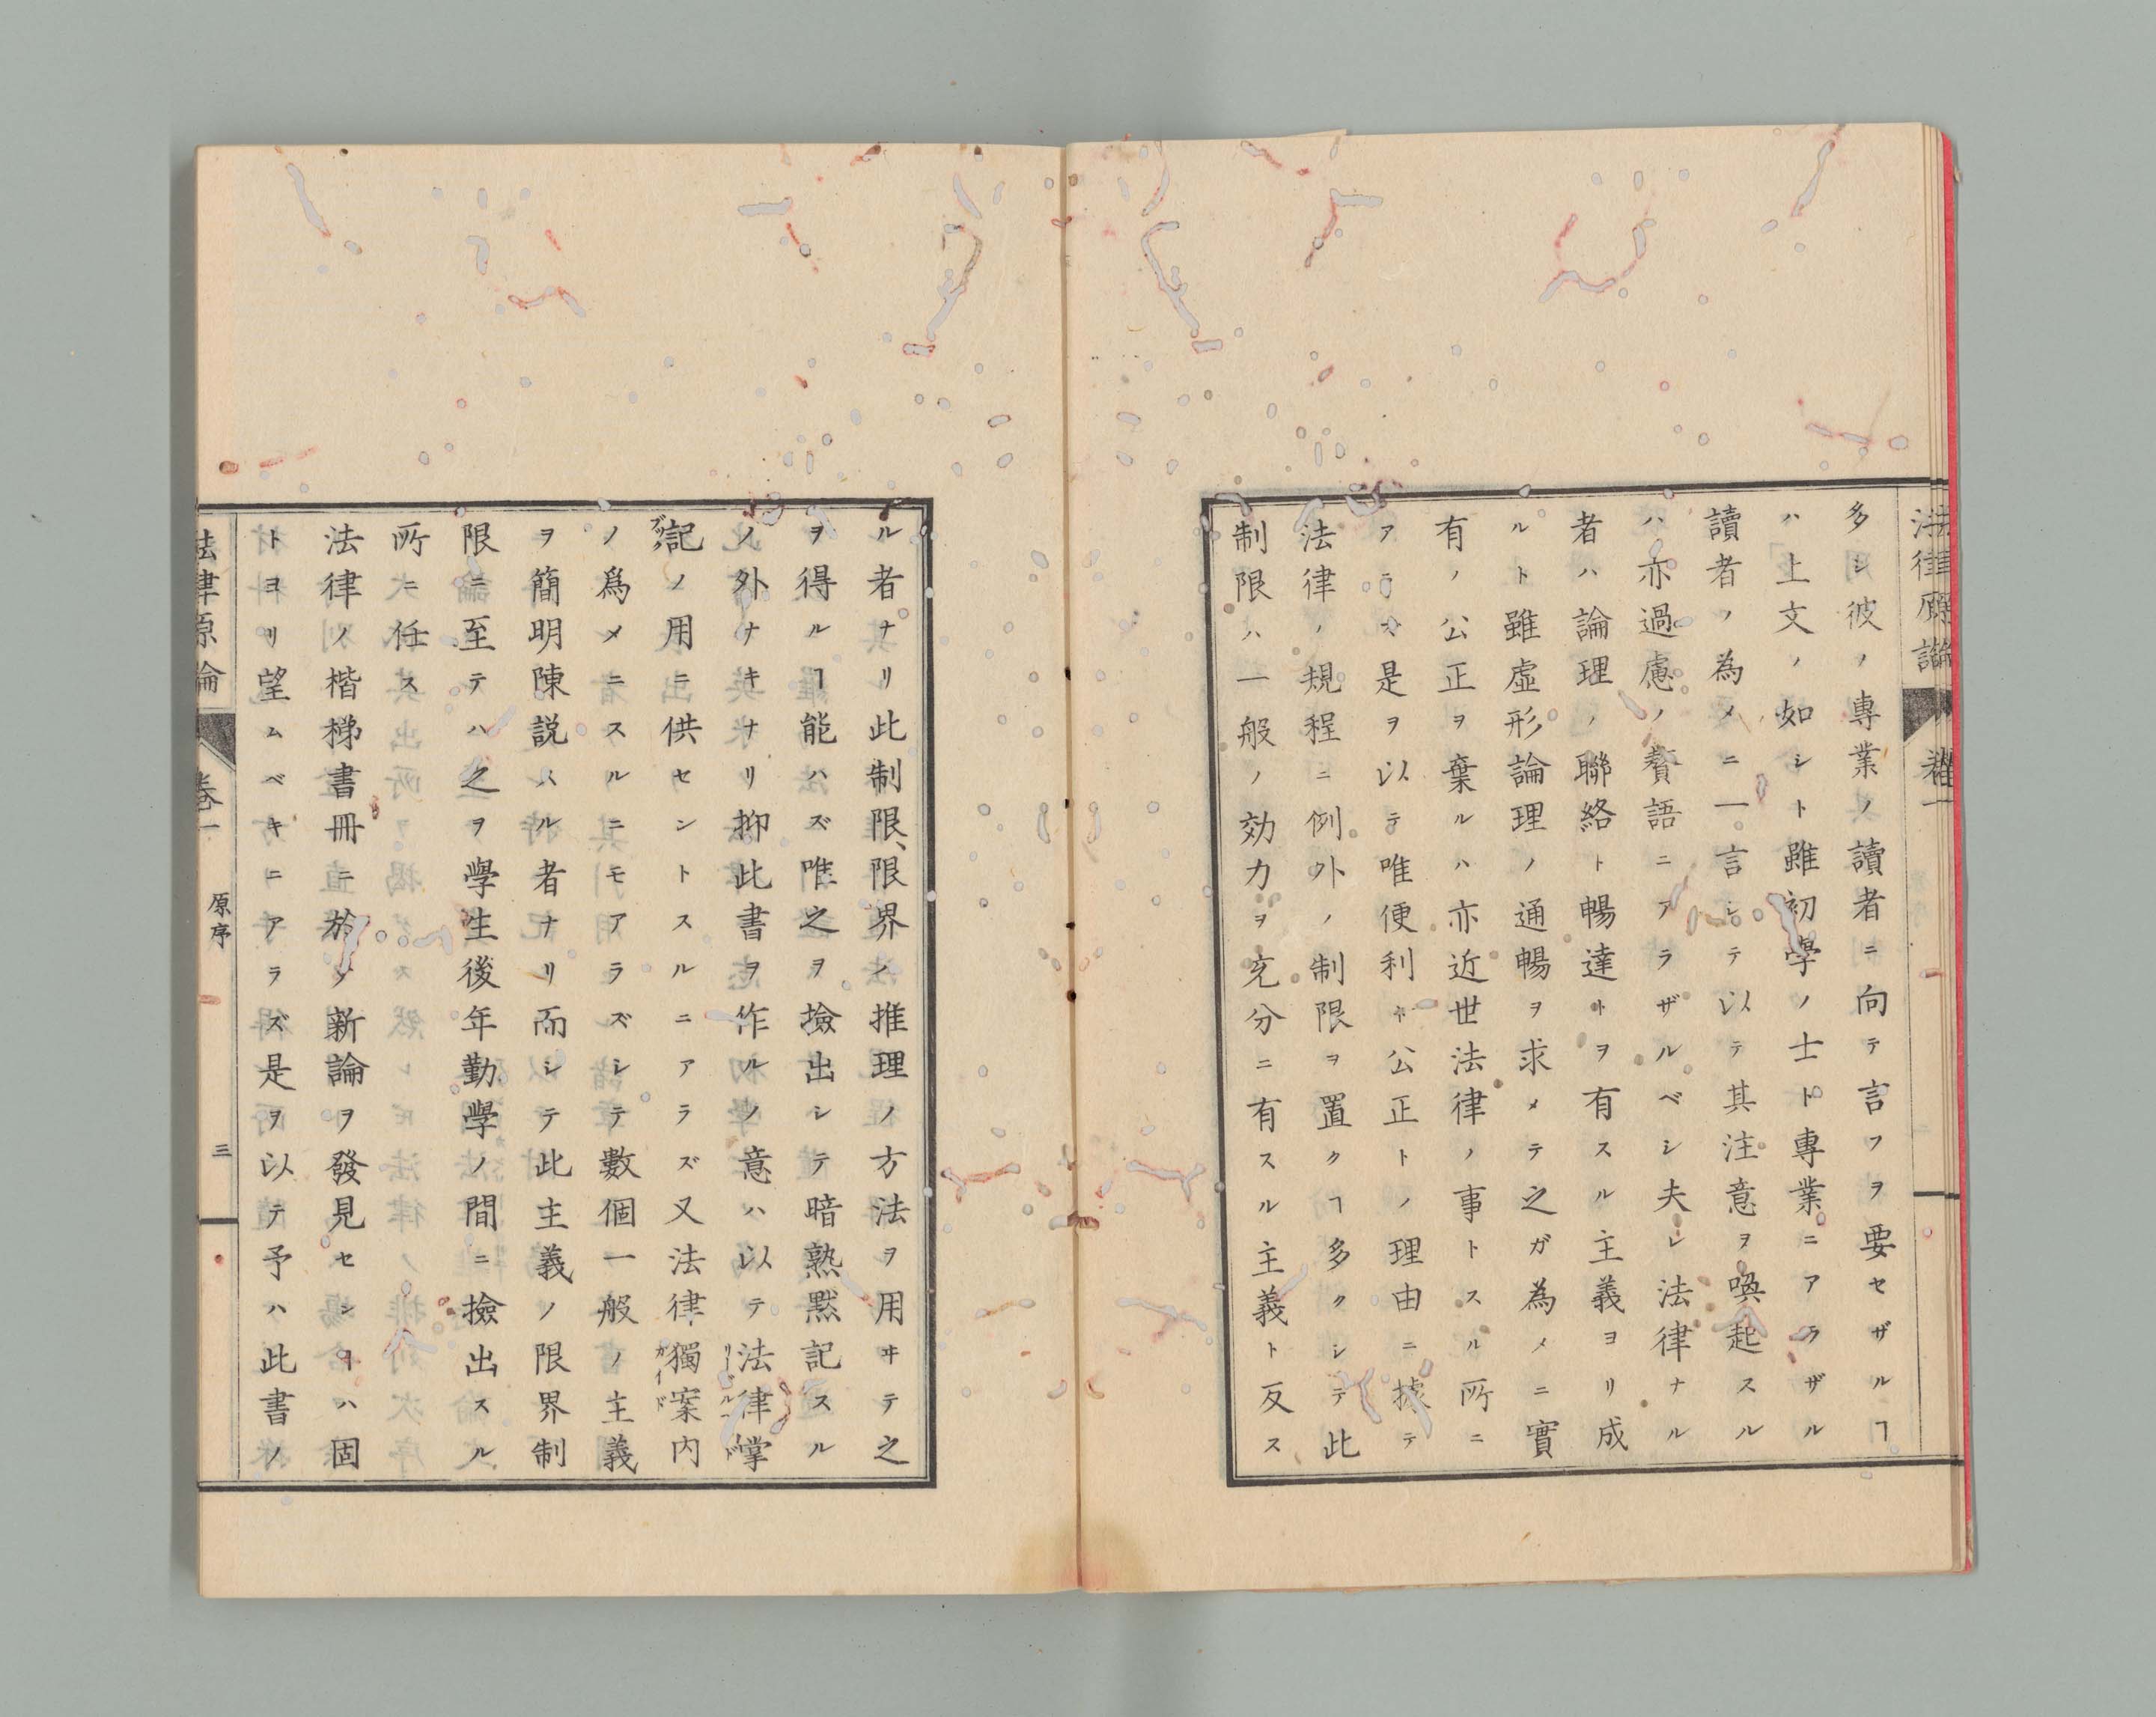 法律原論
卷一
多シ彼ノ專業ノ讀者ニ向テ言フヲ要セザルヿ
ハ上文ノ如シト雖初學ノ士ト專業ニアラザル
讀者ノ為メニ一言シテ以テ其注意ヲ喚起スル
ハ亦過慮ノ贅語ニアラザルベシ夫レ法律ナル
者ハ論理ノ聯絡ト暢達トヲ有スル主義ヨリ成
ルト雖虛形論理ノ通暢ヲ求メテ之ガ為メニ實
有ノ公正ヲ棄ルハ亦近世法律ノ事トスル所ニ
アラズ是ヲ以テ唯便利ト公正トノ理由ニ據テ
法律ノ規程ニ例外ノ制限ヲ置クヿ多クシテ此
制限ハ一般ノ効力ヲ充分ニ有スル主義ト反ス
ル者ナリ此制限、限界ノ推理ノ方法ヲ用ヰテ之
ヲ得ルヿ能ハズ唯之ヲ撿出シテ暗熟默記スル
ノ外ナキナリ抑此書ヲ作ルノ意ハ以テ法律掌
記ノ用ニ供セントスルニアラズ又法律獨案内
ノ爲メニスルニモアラズシテ數個一般ノ主義
ヲ簡明陳説スル者ナリ而シテ此主義ノ限界制
限ニ至テハ之ヲ學生後年勤學ノ間ニ撿出スル
所ニ任ス
法律ノ楷梯書冊ニ於テ新論ヲ發見センヿハ固
トヨリ望ムベキニアラズ是ヲ以テ予ハ此書ノ
法律原論
卷一
原序
三